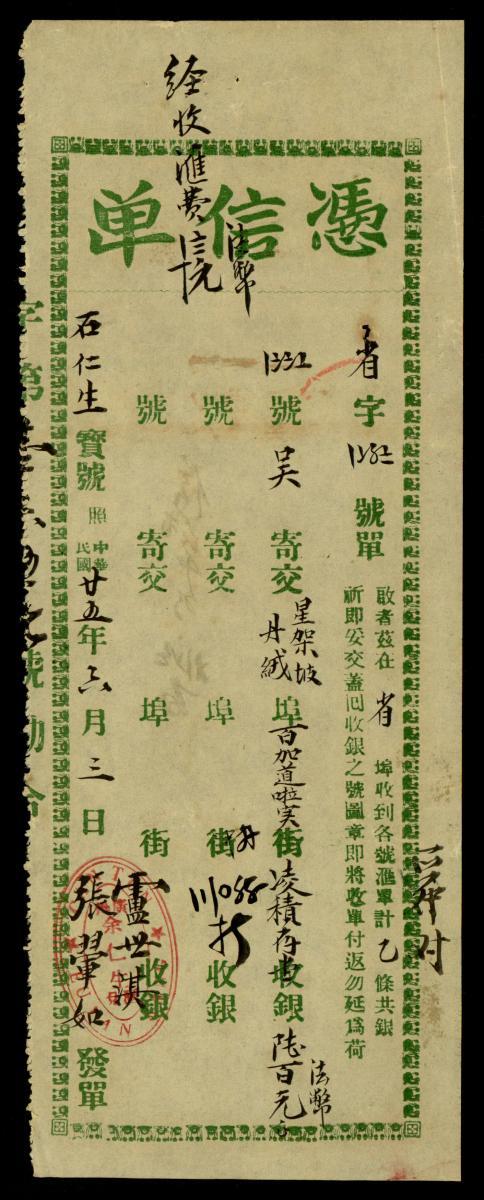 憑信单
経收匯費法幣
省字號單
敬者茲在省埠收到各號滙單計乙條共銀
祈即妥交蓋囬收銀之號圖章即將收單付返勿延爲荷
號吳寄交星架坡丹絨埠百加道啦実街凌積存收銀法幣陸百元
號寄交埠街收銀
號寄交埠街收銀
石仁生寶號照中華民國廿五年六月三日發單
盧世淇
張翬如
余仁生
字第號勘合